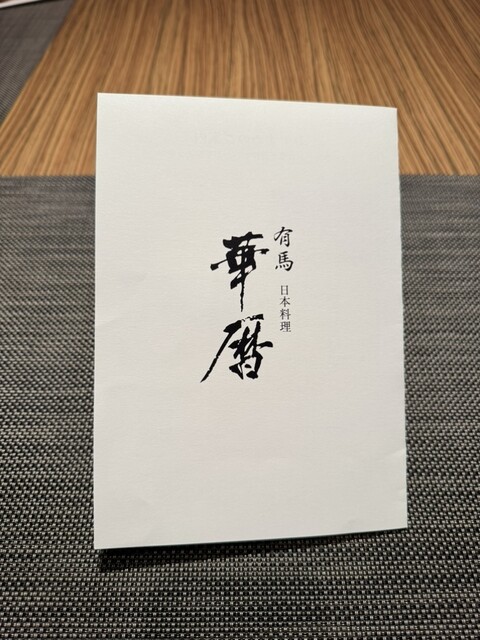 有馬 日本料理
華暦